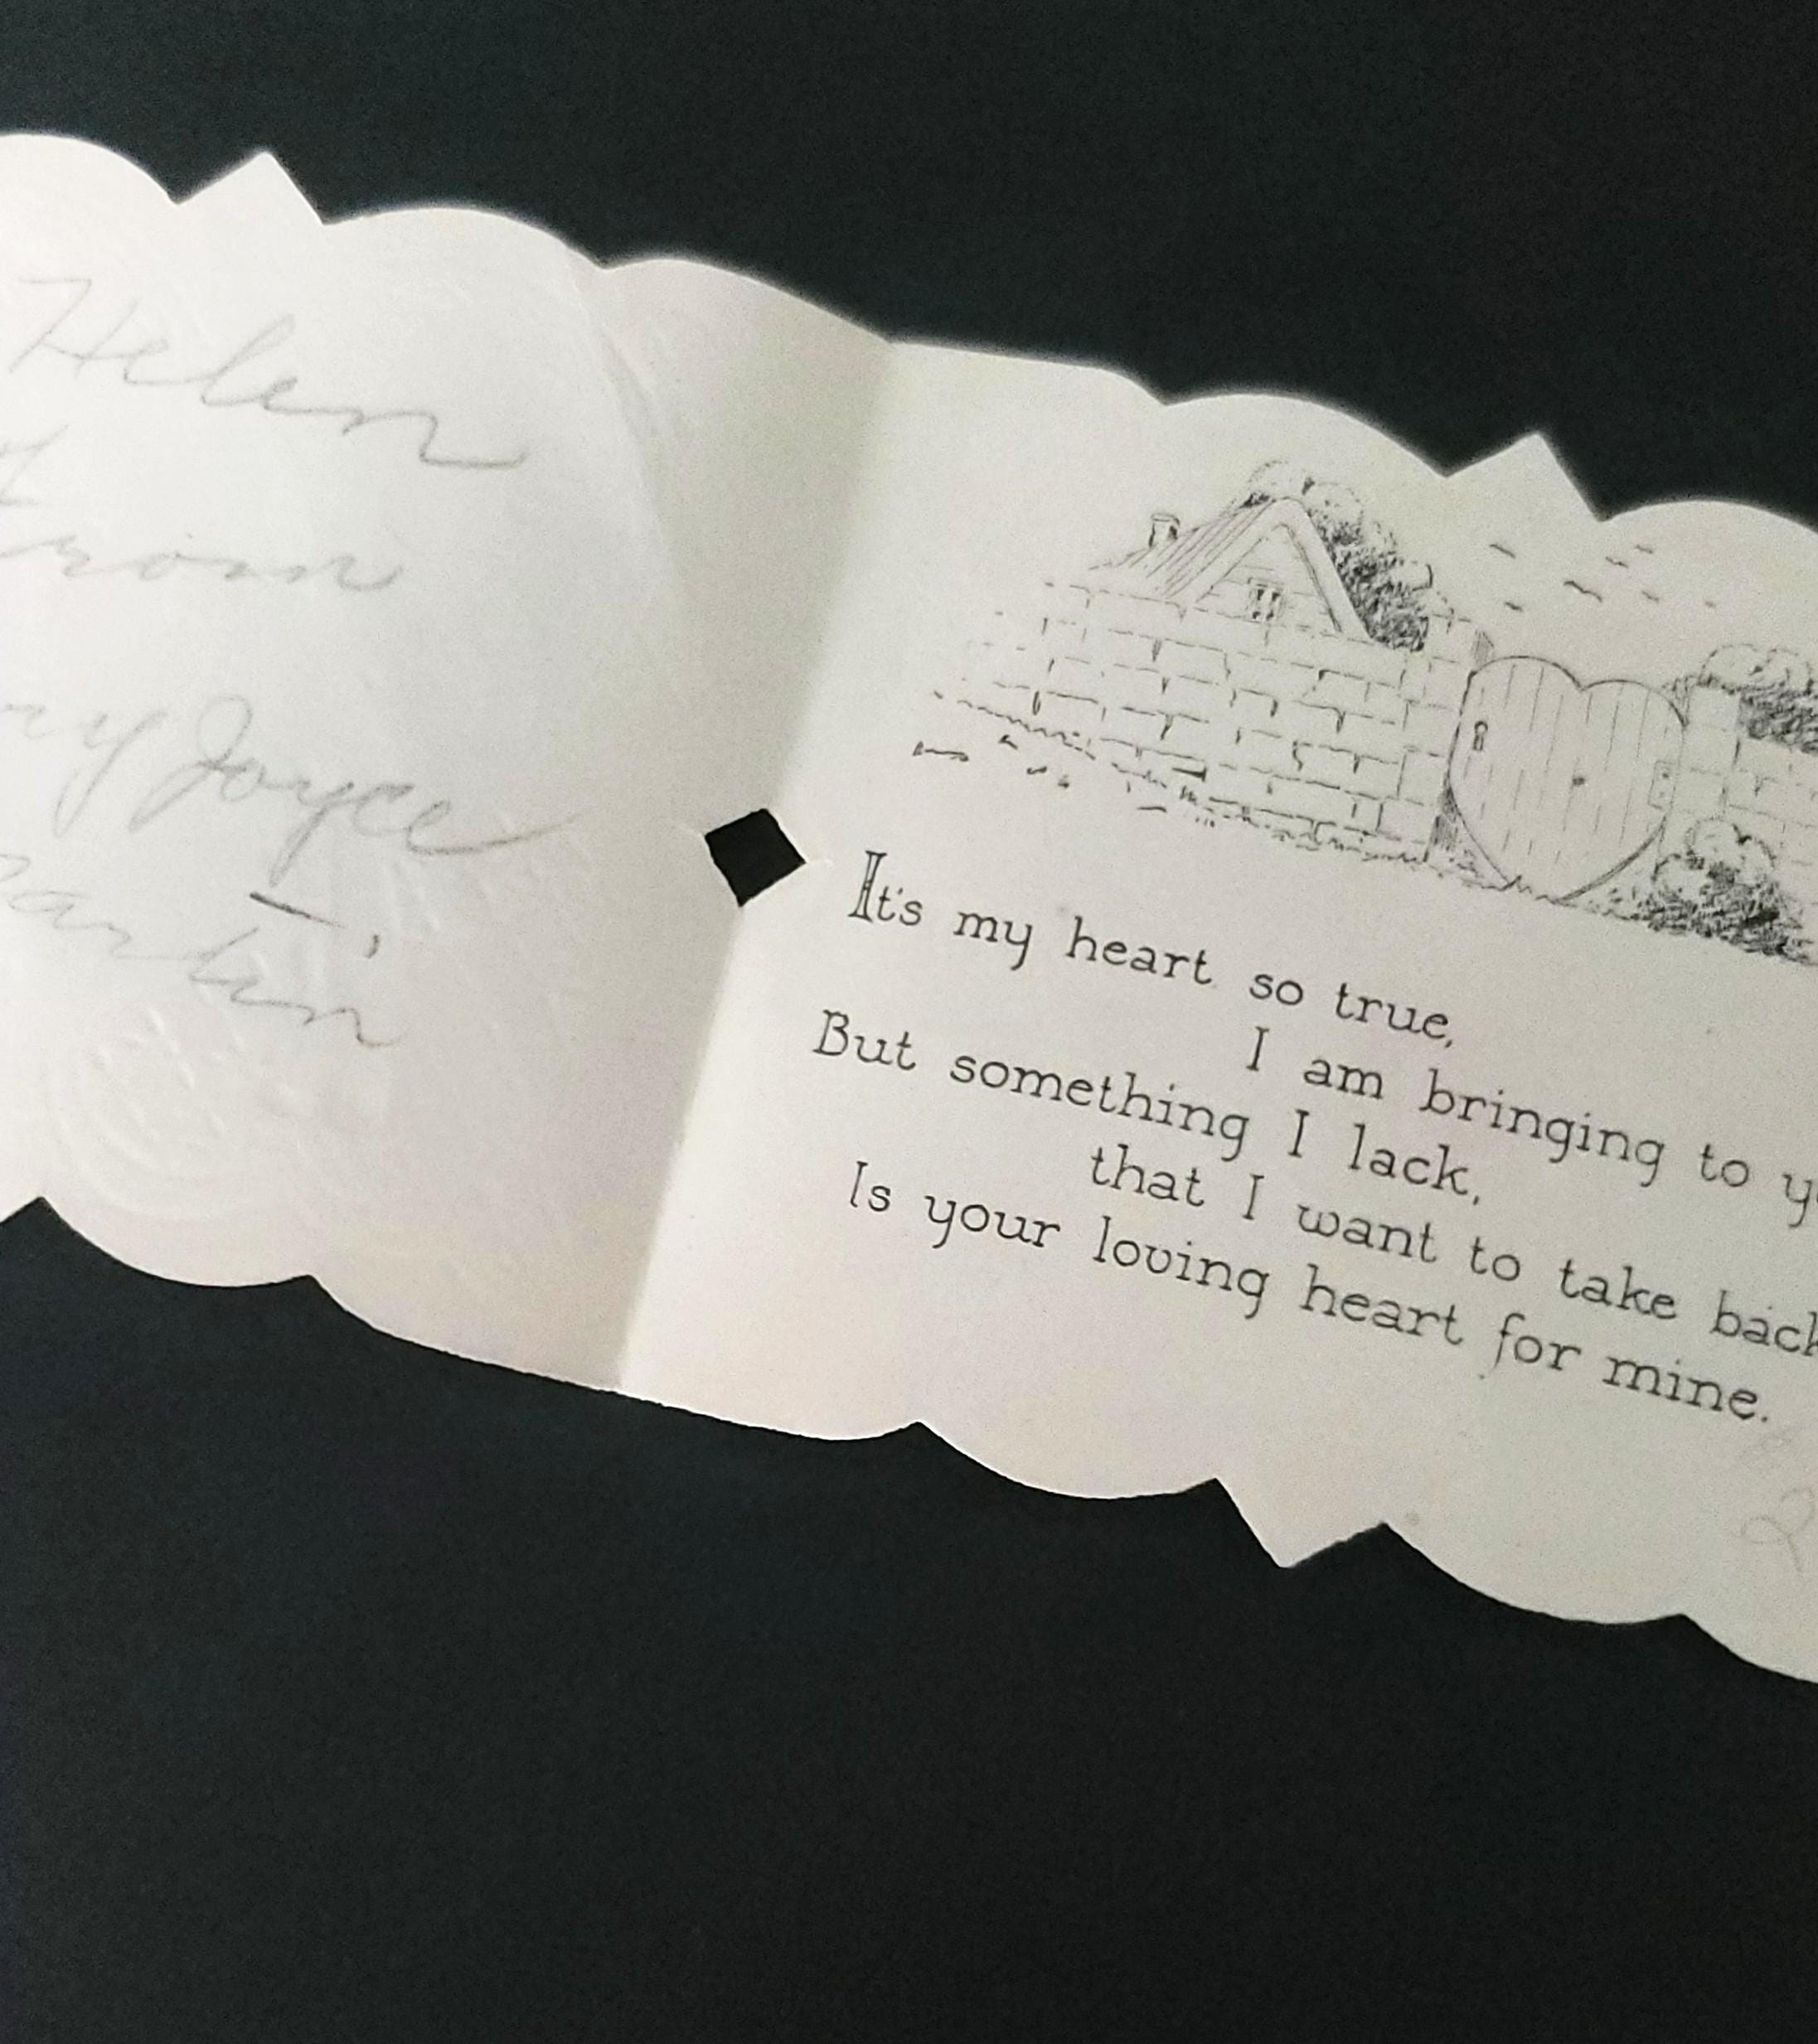 Helen
From
ry Joyce
artin
It's my heart so true,
I am bringing to y
But something I lack,
that I want to take back
Is your loving heart for mine.
2